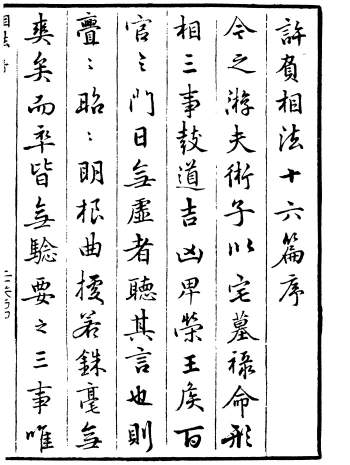 許負相法十六篇序
今之游夫術子以宅墓祿命形
相三事鼓道吉凶卑榮王侯百
官之門日無虛者聽其言也則
亹〻昭〻明根曲據若銖毫無
爽矣而率皆無驗要之三事唯